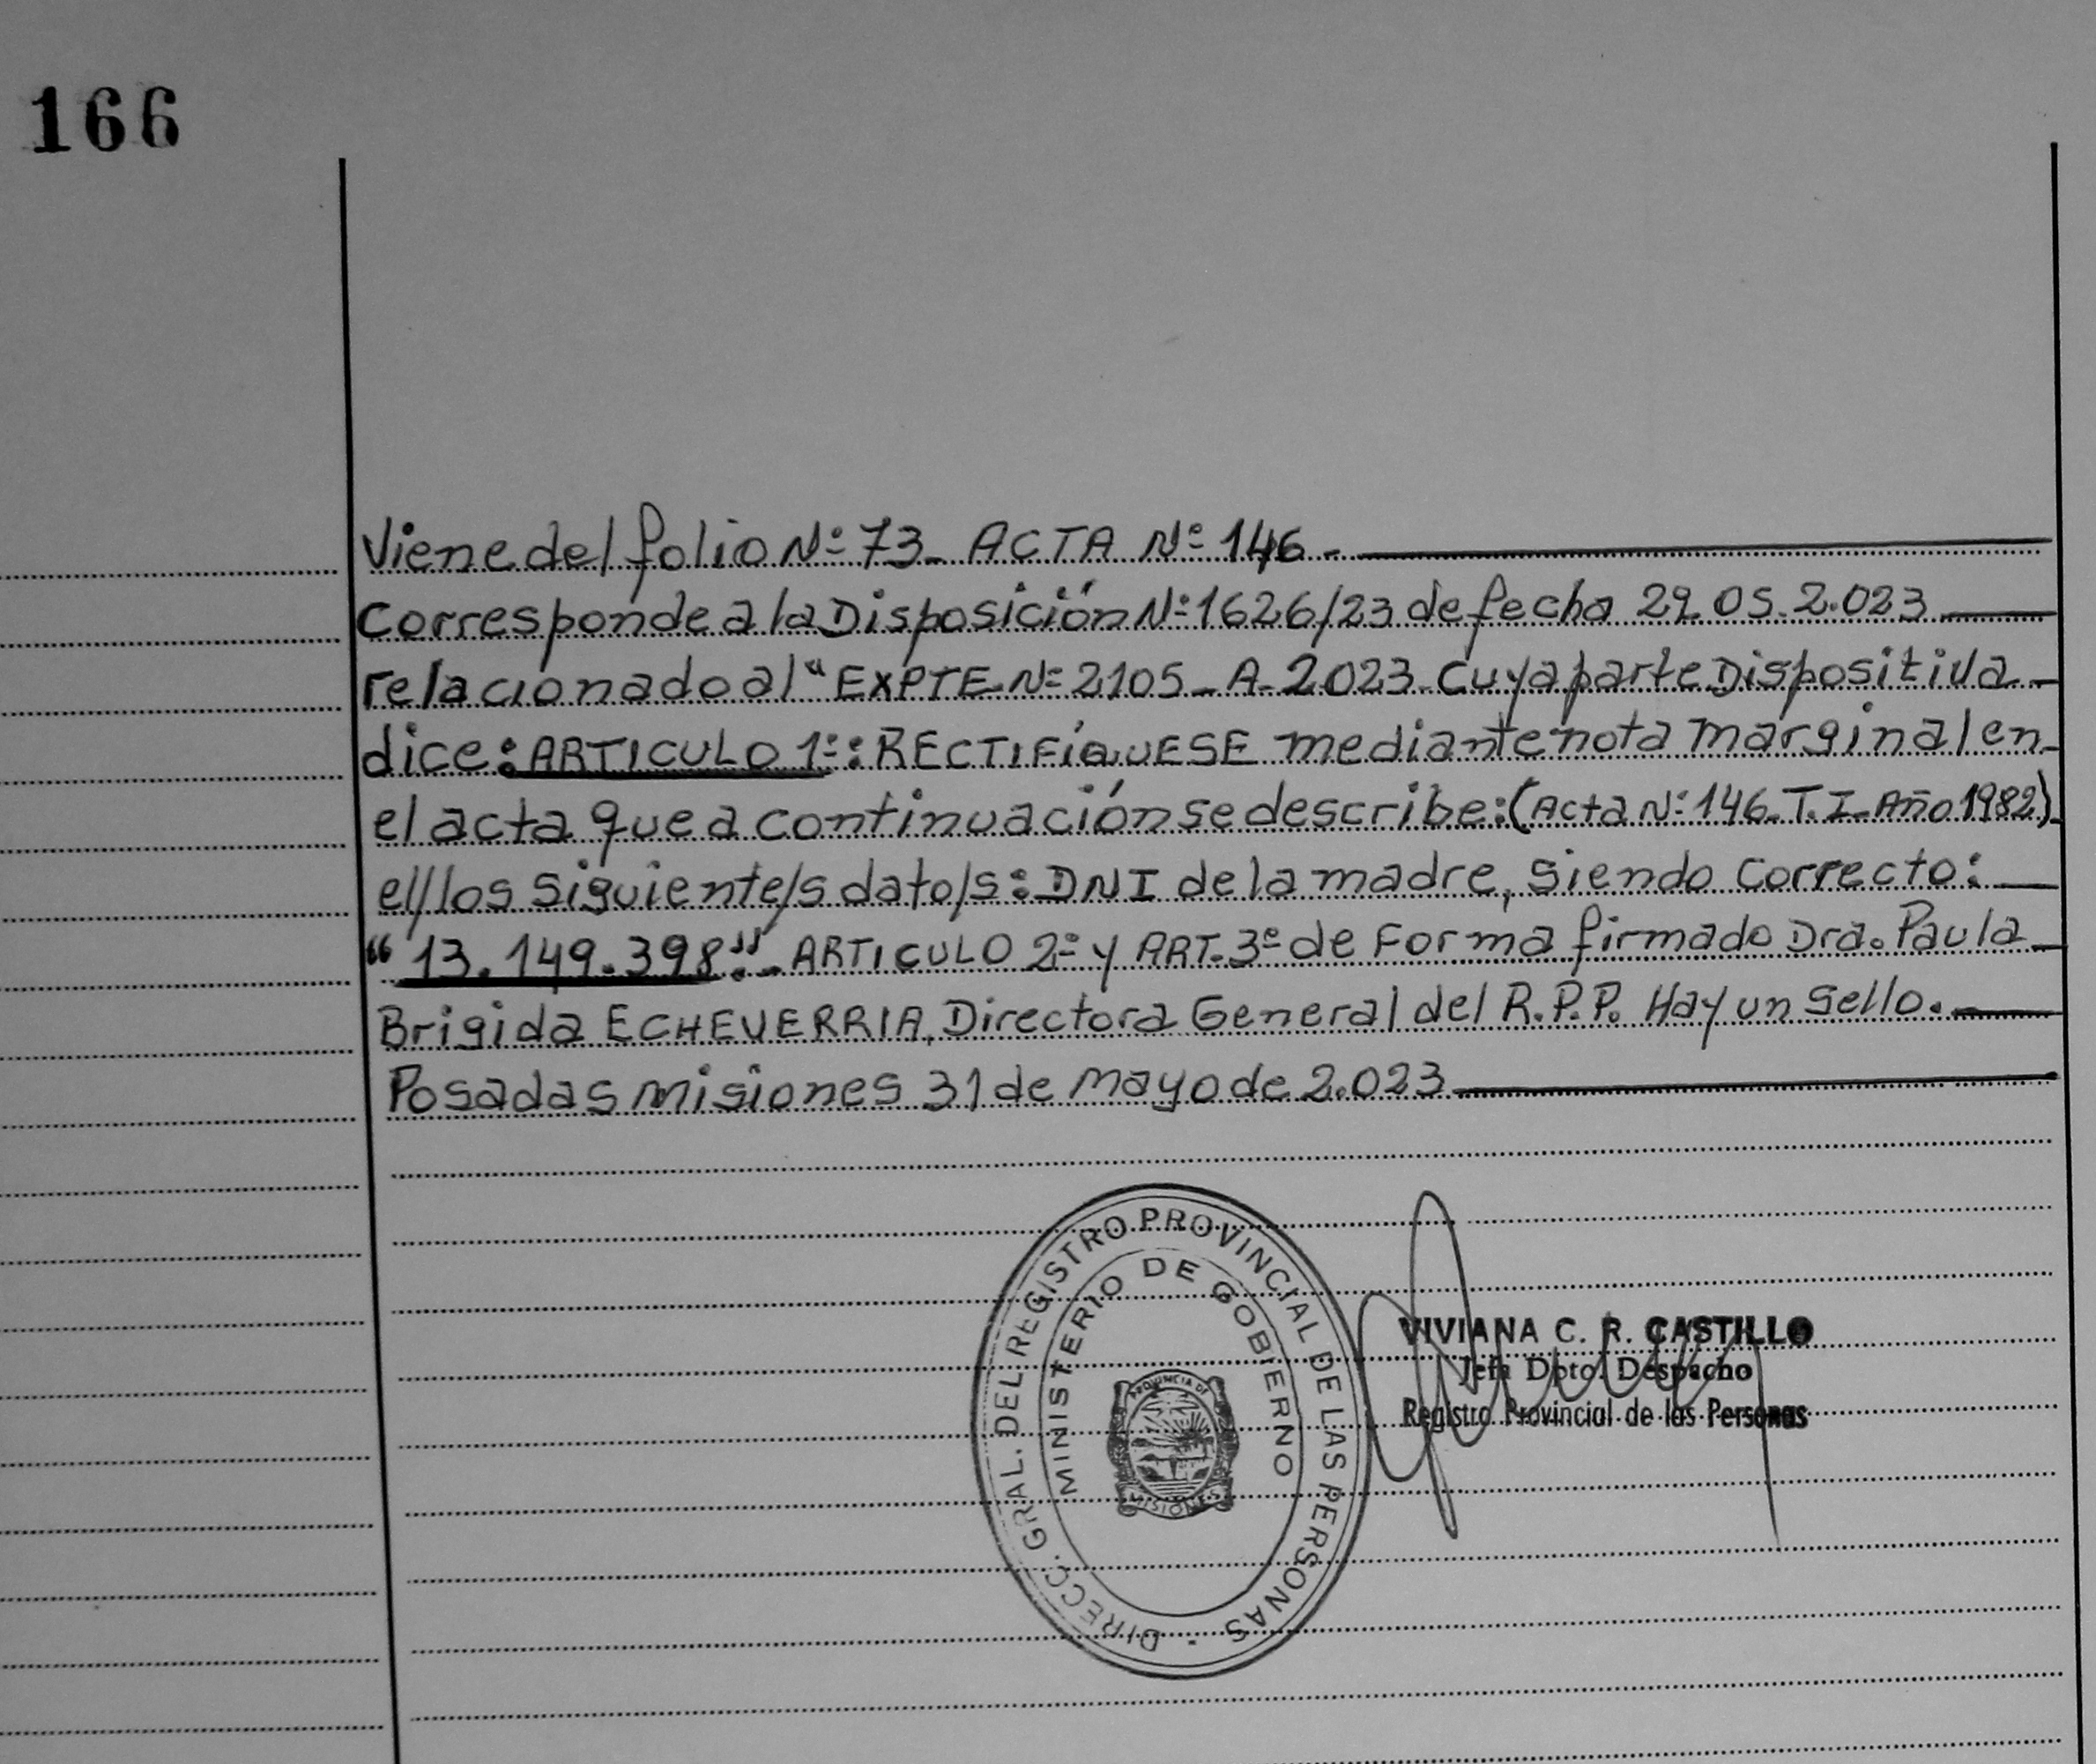 166
Viene del folio Nº 73_ ACTA Nº 146_
Corresponde a la Disposición Nº 1626/23 de fecha 29.05.2.023
relacionado al "EXPTE Nº 2105_A_2023. Cuya parte Dispositiva
dice: ARTICULO 1º: RECTIFíQUESE mediante nota marginal en
el acta que a continuación se describe: (Acta Nº 146_T.I_Año 1982)
el/los siguiente/s dato/s: DNI de la madre, siendo correcto:
"13.149.398"._ ARTICULO 2º y ART. 3º de Forma firmado Dra. Paula
Brigida ECHEVERRIA, Directora General del R.P.P. Hay un sello.
Posadas Misiones 31 de Mayo de 2.023
DIRECC. GRAL. DEL REGISTRO PROVINCIAL DE LAS PERSONAS -
MINISTERIO DE GOBIERNO
PROVINCIA DE
MISIONES
VIVIANA C. R. CASTILLO
Jefa Dpto. Despacho
Registro Provincial de las Personas